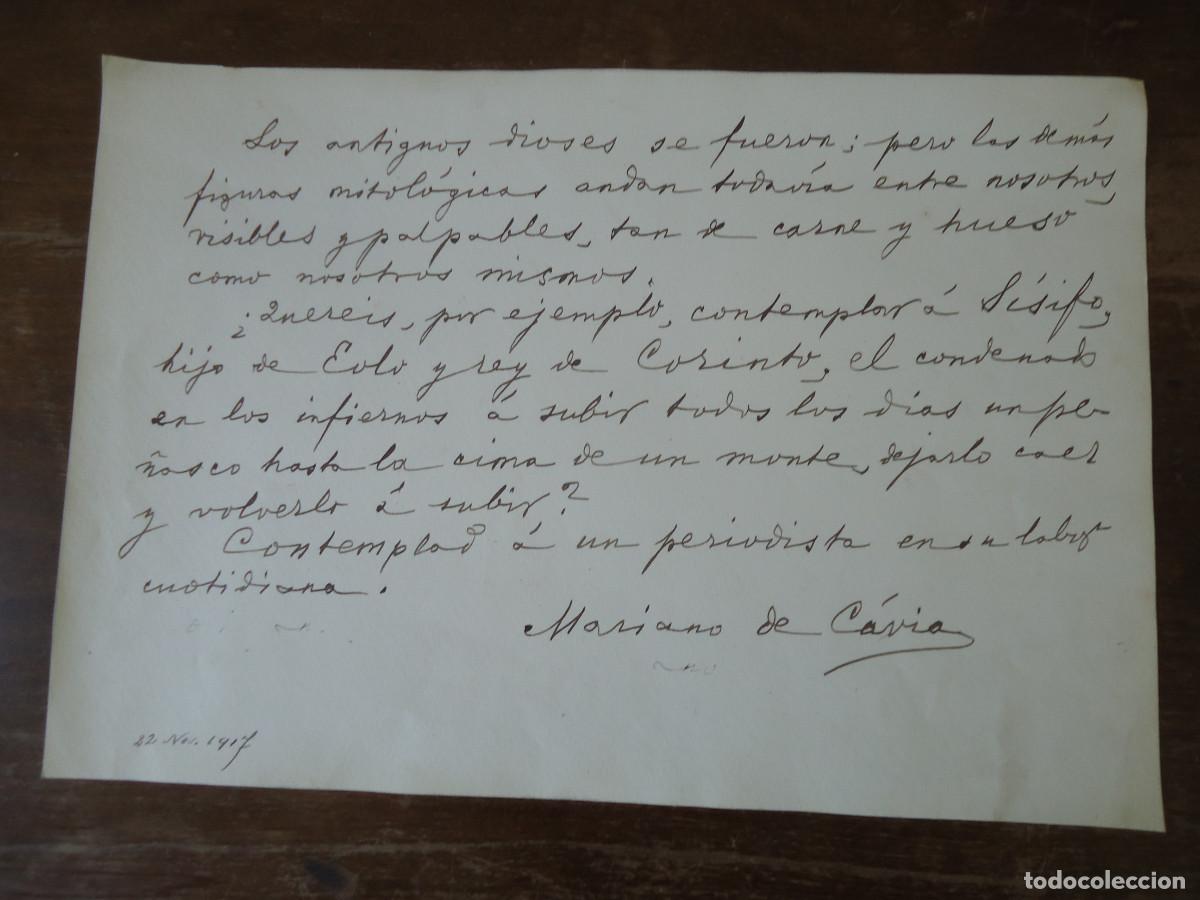 Los antiguos dioses se fueron; pero las demás
figuras mitológicas andan todavía entre nosotros,
visibles y palpables, tan de carne y hueso
como nosotros mismos.
¿Quereis, por ejemplo, contemplar á Sísifo,
hijo de Eolo y rey de Corinto, el condenado
en los infiernos á subir todos los dias un pe-
ñasco hasta la cima de un monte, dejarlo caer
y volverlo á subir?
Contemplad á un periodista en su labor
cuotidiana.
Mariano de Cávia
22 Nov. 1917
todocoleccion